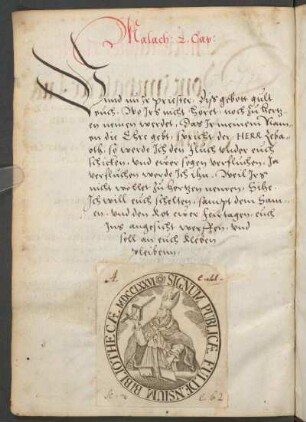 Malach: 2. Cap:
Und nu jr priester, diß gebott gillt
euch. Wo Jrs nicht höret noch zu hertz-
en nemen werdet, Das jr meinem Nam-
en die Ehr gebt, spricht der HERR Zeba-
oth. so werde Ich den fluch vnder euch
schicken, und eurer segen verfluchen, Ja
verfluchen werde Ich ihn. Weil Jrs
nicht wöllet zu hertzen nemen, Sihe
Ich will euch schelten, sampt dem Sam-
en, und den Kot eurer feiertagen euch
Ins angesicht werffen, und
soll an euch kleben
pleiben.
SIGNUM PUBLICÆ FULDENSIUM BIBLIOTHECÆ MDCCLXXVI
C 62